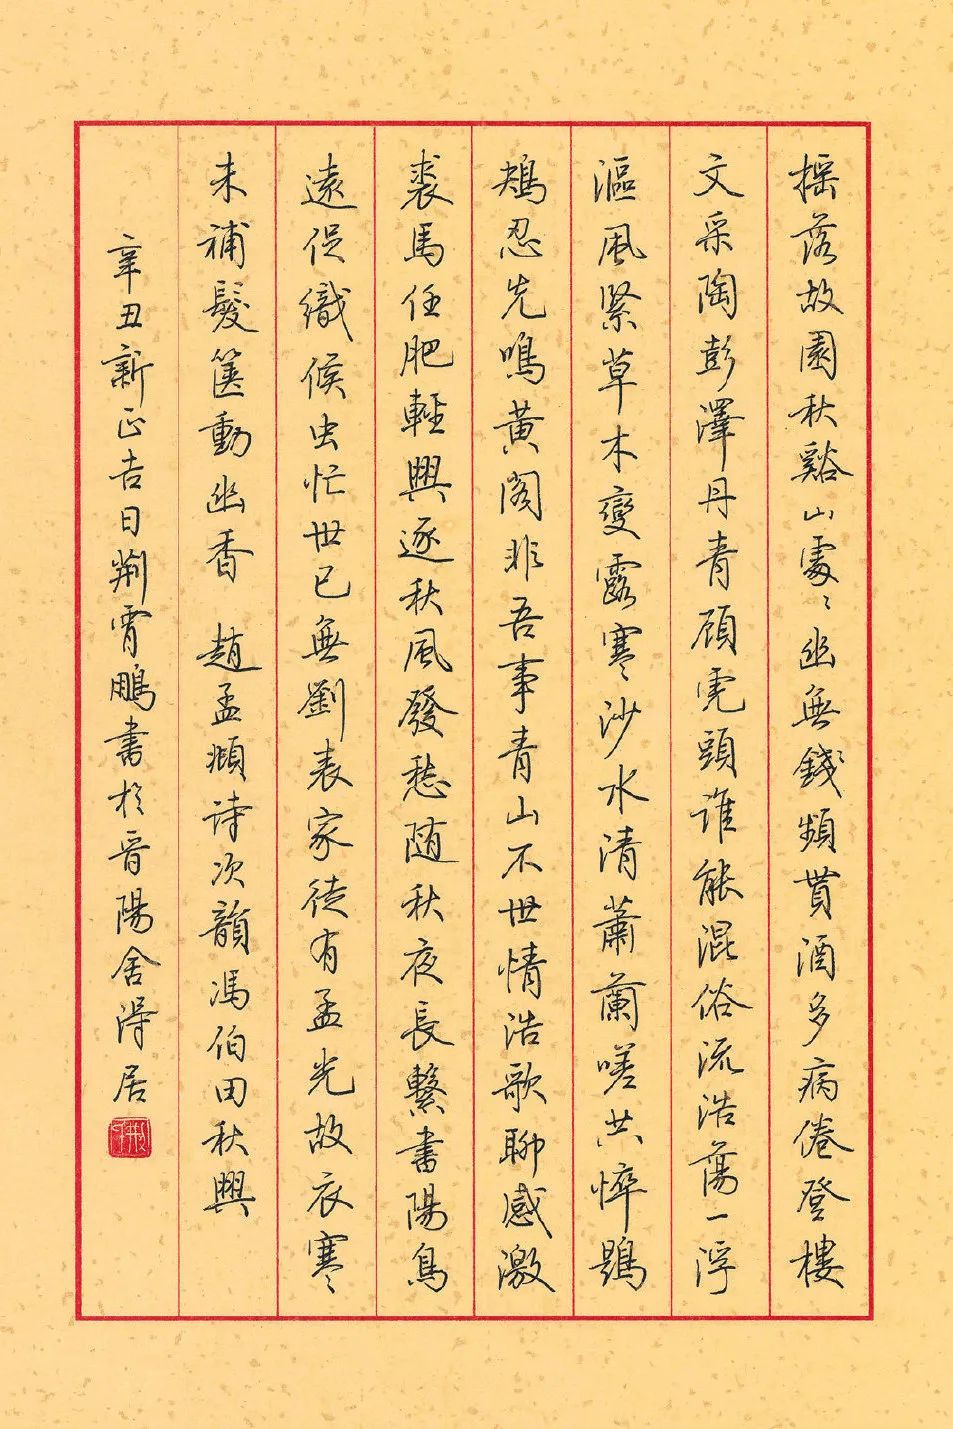 摇落故園秋谿山處〻幽無錢頻貰酒多病倦登樓
文采陶彭澤丹青顧虎頭誰能混俗流浩蕩一浮
漚風緊草木變露寒沙水清蕭蘭嗟共悴鶗
鴂忍先鳴黄阁非吾事青山不世情浩歌聊感激
裘馬任肥輕興逐秋風發愁随秋夜長繫書陽鳥
遠促織候虫忙世已無劉表家徒有孟光故衣寒
未補髮篋動幽香 趙孟頫诗次韻馮伯田秋興
辛丑新正吉日荆霄鵬書於晋陽舍得居